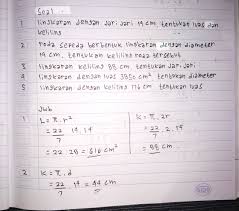 Soal
1 lingkaran dengan jari jari 14 cm, tentukan luas dan
keliling
2 roda sepeda berbentuk lingkaran dengan diameter
14 cm, tentukan keliling roda tersebut
3 lingkaran keliling 88 cm tentukan jari jari
4 lingkaran dengan luas 3850 cm² tentukan diameter
5 lingkaran dengan keliling 176 cm tentukan luas
Jwb
1 L = π . r²
= 22/7 . 14 . 14
= 22 . 28 = 616 cm²
K = π . 2r
= 22/7 . 2 . 14
= 88 cm
2 K = π . d
= 22/7 . 14 = 44 cm